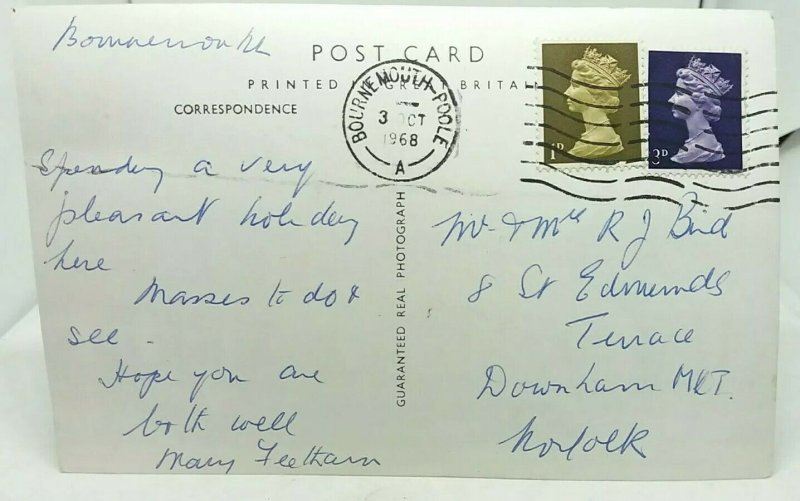 Bournemouth
POST CARD
PRINTED IN GREAT BRITAIN
CORRESPONDENCE
BOURNEMOUTH-POOLE
3 OCT
1968
A
1D
3D
Spending a very
pleasant holiday
here
Masses to do &
see -
Hope you are
both well
Mary Feetham
GUARANTEED REAL PHOTOGRAPH
Mr & Mrs R J Bird
8 St Edmunds
Terrace
Downham MKT.
Norfolk